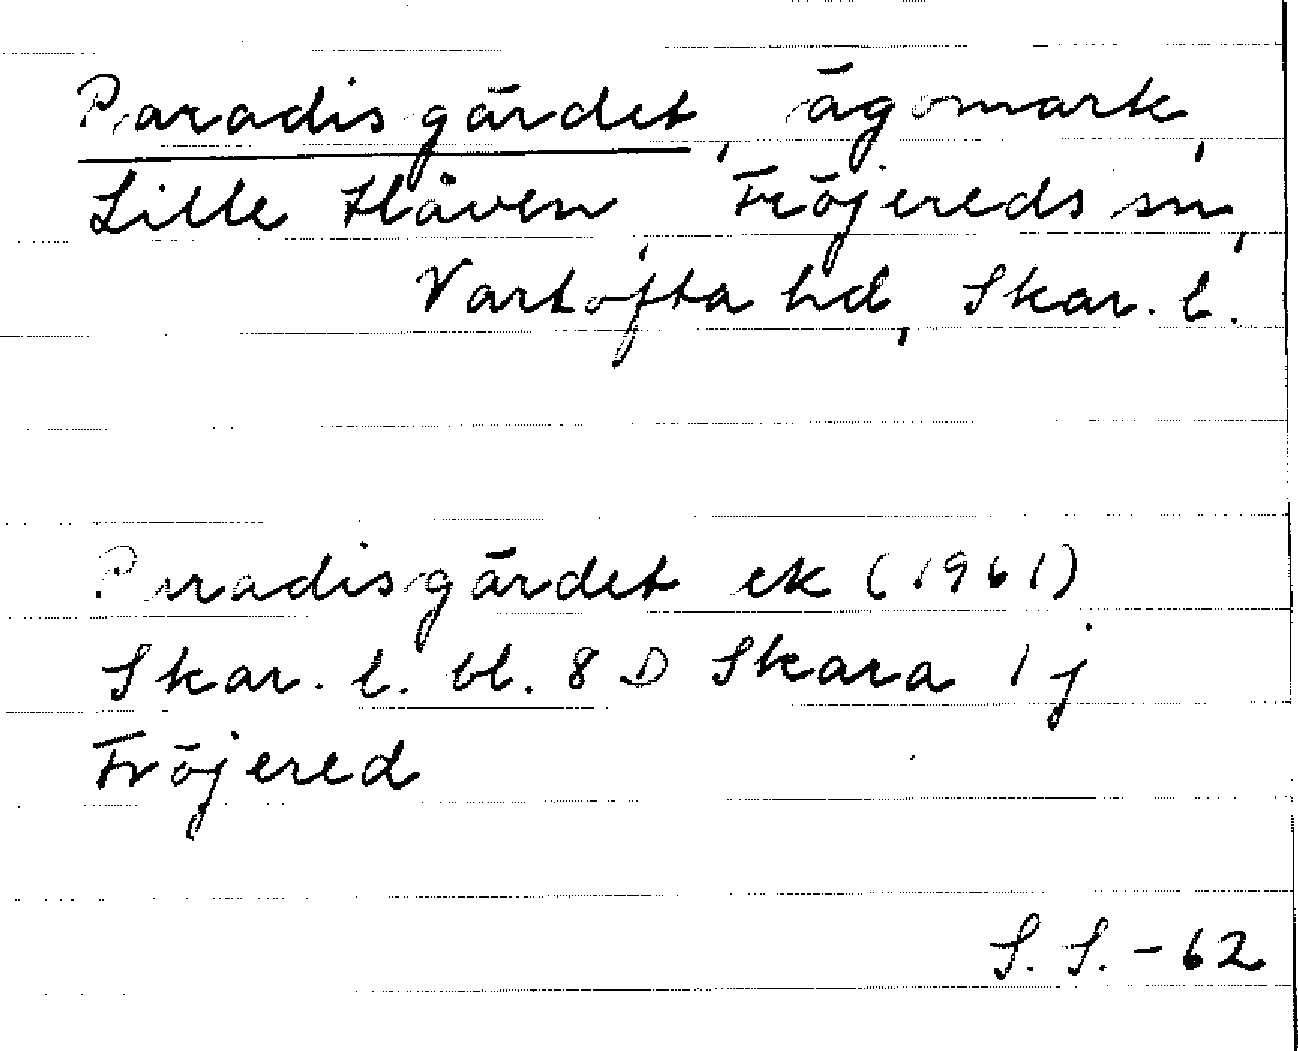 Paradisgärdet, ägomark,
Lille Håven, Fröjereds sn,
Vartofta hd, Skar. l.
Paradisgärdet ek (1961)
Skar. l. bl. 8 D Skara 1 j
Fröjered
S. S. - 62